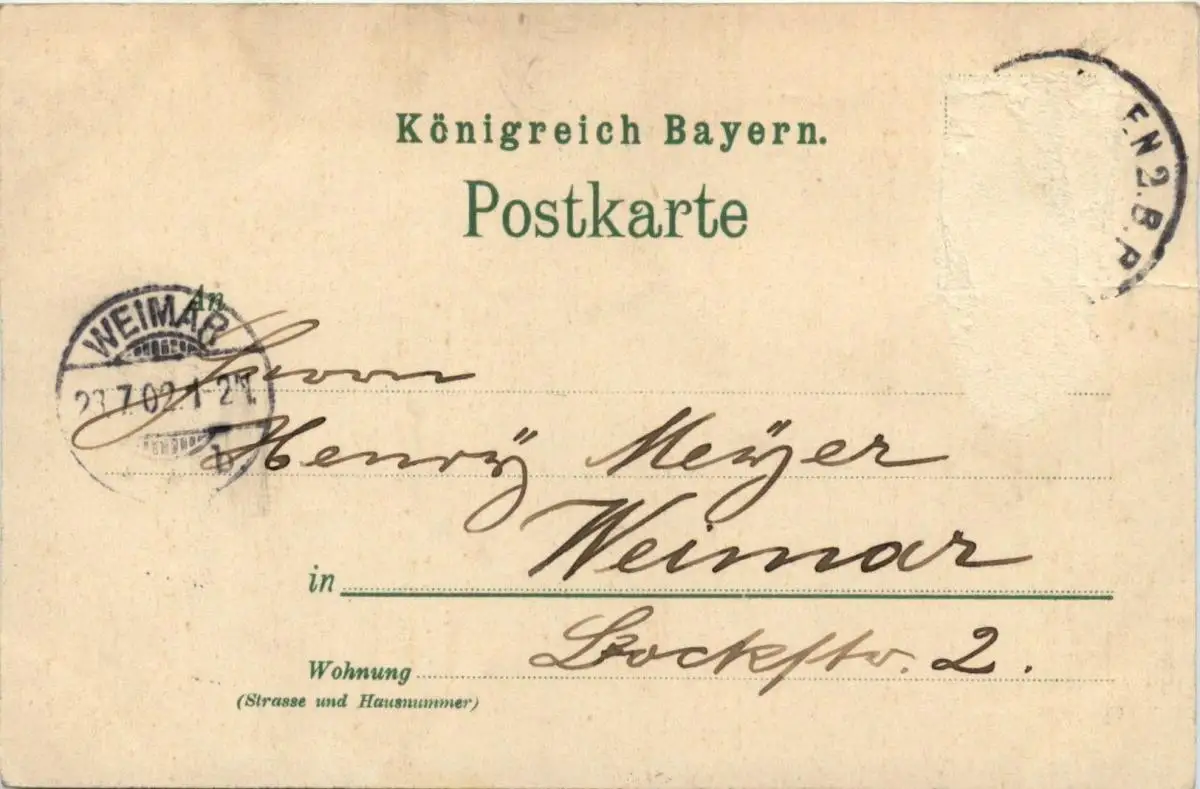 Königreich Bayern.
Postkarte
EN 2. B. P.
An
WEIMAR
23.7.02.1-2N.
Herrn
Henrÿ Meÿer
in Weimar
Wohnung 2.
(Strasse und Hausnummer)